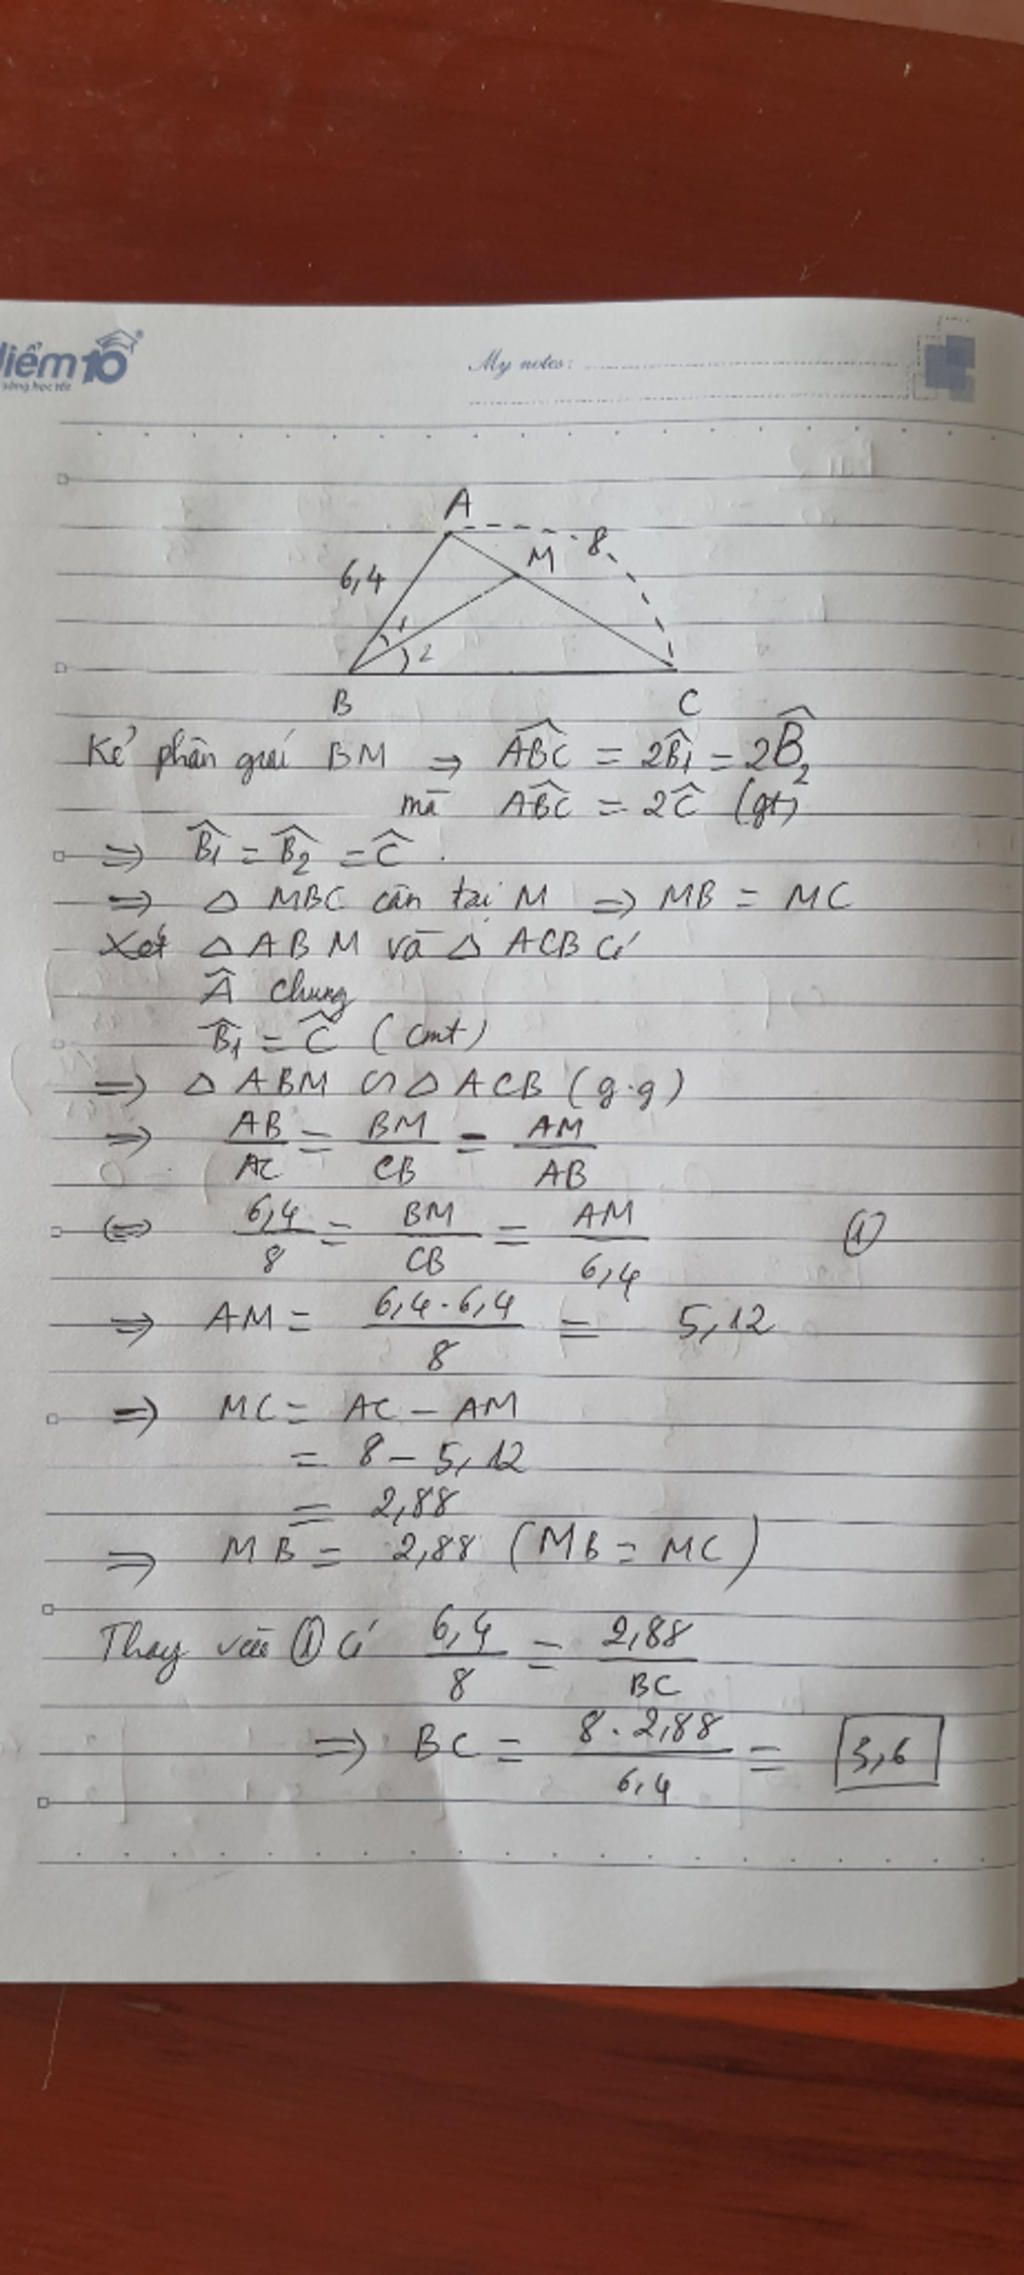 iểm10
sống học tốt
My notes:
A
8
M
6,4
1
2
B
C
Kẻ phân giác BM ⇒ \widehat{ABC} = 2\widehat{B}₁ = 2\widehat{B}₂
mà \widehat{ABC} = 2\widehat{C} (gt)
⇒ \widehat{B}₁ = \widehat{B}₂ = \widehat{C}.
⇒ △ MBC cân tại M ⇒ MB = MC
Xét △ ABM và △ ACB có
\widehat{A} chung
\widehat{B}₁ = \widehat{C} (cmt)
⇒ △ ABM ∽ △ ACB (g.g)
⇒ AB/AC = BM/CB = AM/AB
⇔ 6,4/8 = BM/CB = AM/6,4 ①
⇒ AM = 6,4 . 6,4/8 = 5,12
⇒ MC = AC - AM
= 8 - 5,12
= 2,88
⇒ MB = 2,88 (MB = MC)
Thay vào ① có 6,4/8 = 2,88/BC
⇒ BC = 8 . 2,88/6,4 = 3,6